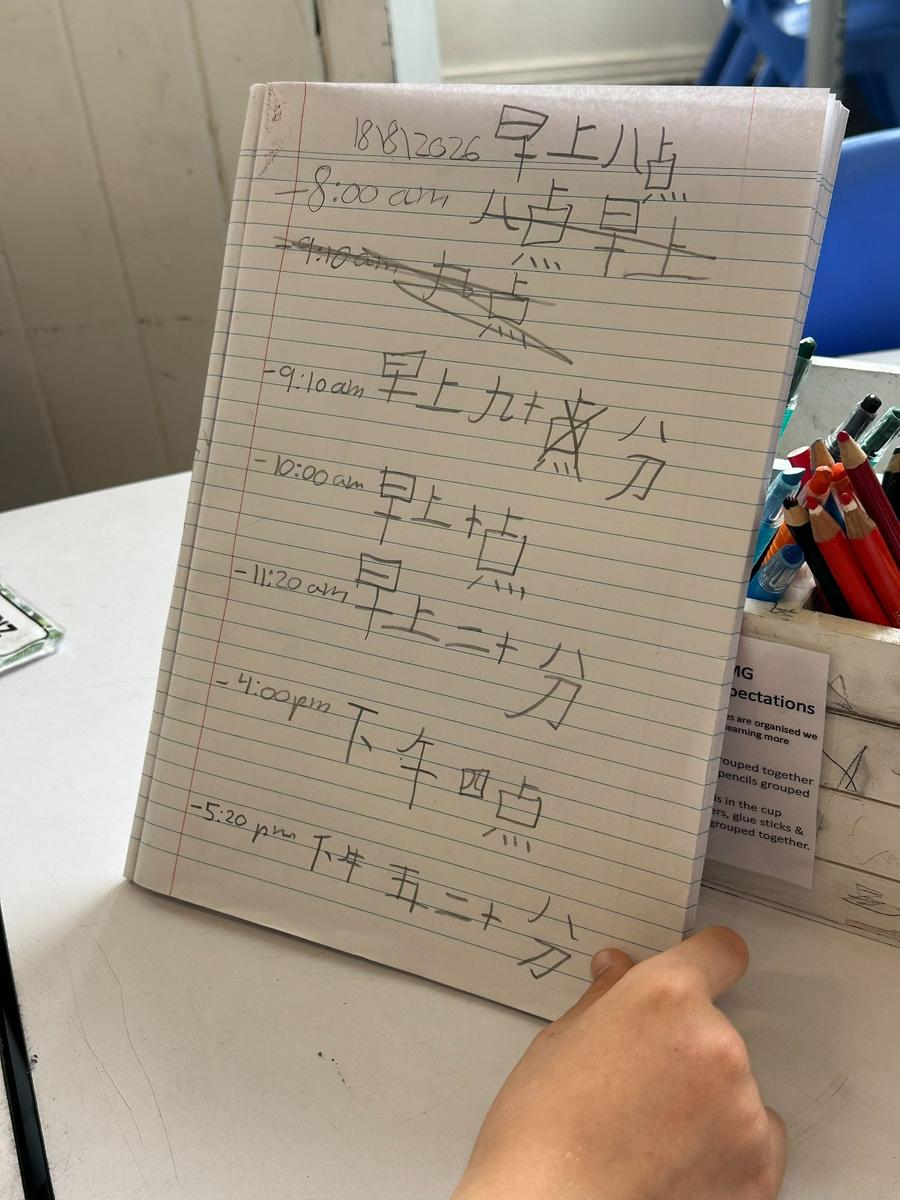 18\8\2026 早上八点
-8:00 am 八点早上
-9:10 am 九点
-9:10 am 早上九十点分
-10:00 am 早上十点
-11:20 am 早上二十分
-4:00pm 下午四点
-5:20 pm 下午五二十分
MG
pectations
es are organised we
earning more
rouped together
pencils grouped
ls in the cup
ers, glue sticks &
grouped together.